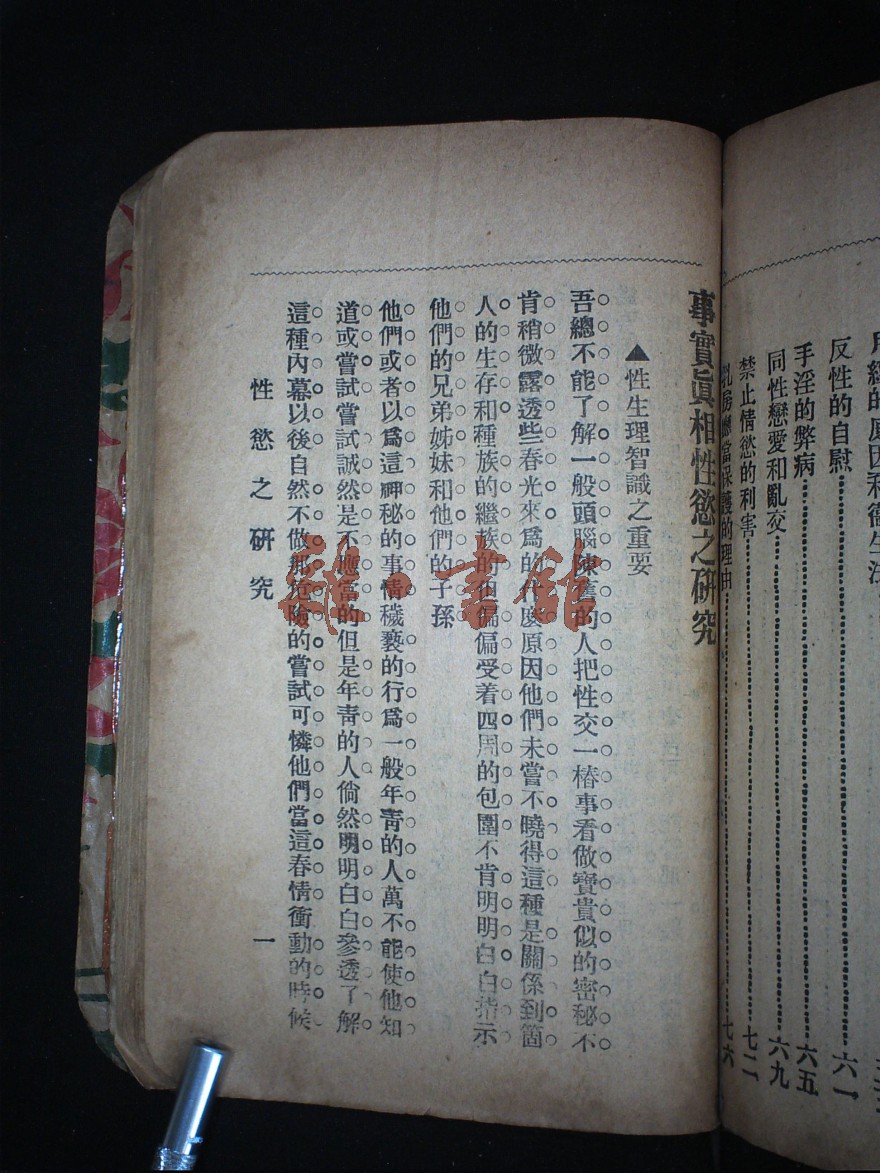 的原因和衞生法
反性的自慰……六一
手淫的弊病……六五
同性戀愛和亂交……六九
禁止情慾的利害……七二
乳房應當保護的理由……七六
事實眞相性慾之研究
▲性生理智識之重要
吾總不能了解一般頭腦陳舊的人把性交一樁事看做寶貴似的密秘不
肯稍微露透些春光來爲的什麽原因他們未嘗不曉得這種是關係到箇
人的生存和種族的繼族的但偏偏受着四周的包圍不肯明明白白指示
他們的兄弟姊妹和他們的子孫
他們或者以爲這神秘的事情穢褻的行爲一般年靑的人萬不能使他知
道或嘗試嘗試誠然是不應當的但是年靑的人倘然明明白白參透了解
這種內幕以後自然不做那危險的嘗試可憐他們當這春情衝動的時候
性慾之研究
一
雜·書館